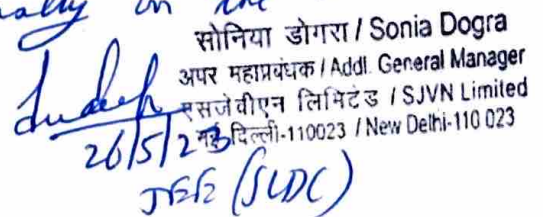 in the
सोनिया डोगरा / Sonia Dogra
अपर महाप्रबंधक / Addl. General Manager
एसजेवीएन लिमिटेड / SJVN Limited
नई दिल्ली-110023 / New Delhi-110 023
26/5/23
(SLDC)